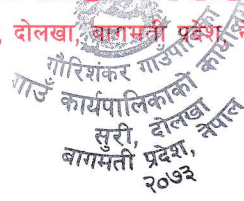 , दोलखा, बागमती प्रदेश, ने
गौरिशंकर गाउँपालिका
गाउँ कार्यपालिकाको कार्यालय
सुरी, दोलखा
बागमती प्रदेश, नेपाल
२०७३